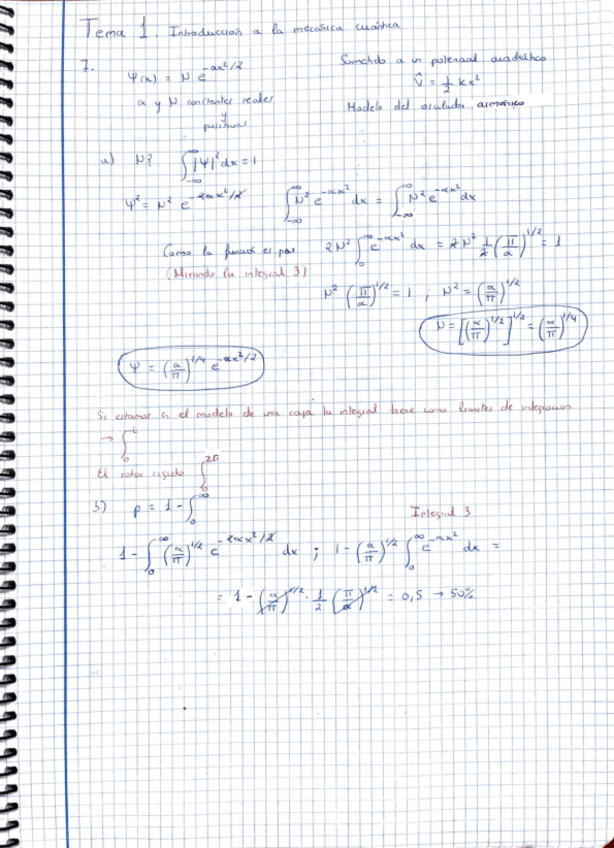 Tema 1. Introducción a la mecánica cuántica
7. Ψ(x) = N e^{-ax²/2}
Sometido a un potencial cuadrático
V̂ = ½ kx²
α y N constantes reales
y
positivas
Modelo del oscilador armónico
a) N? ∫_{-∞}^{∞} |Ψ|² dx = 1
Ψ² = N² e^{-2αx²/2} ∫_{-∞}^{∞} N² e^{-αx²} dx = ∫_{-∞}^{∞} N² e^{-αx²} dx
Como la función es par 2N² ∫_0^∞ e^{-αx²} dx = 2N² ½ (π/α)^{1/2} = 1
(Mirando la integral 3)
N² (π/α)^{1/2} = 1 ; N² = (α/π)^{1/2}
N = [(α/π)^{1/2}]^{1/2} = (α/π)^{1/4}
Ψ = (α/π)^{1/4} e^{-αx²/2}
Si estamos en el modelo de una caja la integral tiene como límites de integración
→ ∫_0^L
El rotor rígido ∫_0^{2π}
b) p = 1 - ∫_0^∞
Integral 3
1 - ∫_0^∞ (α/π)^{1/2} e^{-2αx²/2} dx ; 1 - (α/π)^{1/2} ∫_0^∞ e^{-αx²} dx =
= 1 - (α/π)^{1/2} · ½ (π/α)^{1/2} = 0,5 → 50%